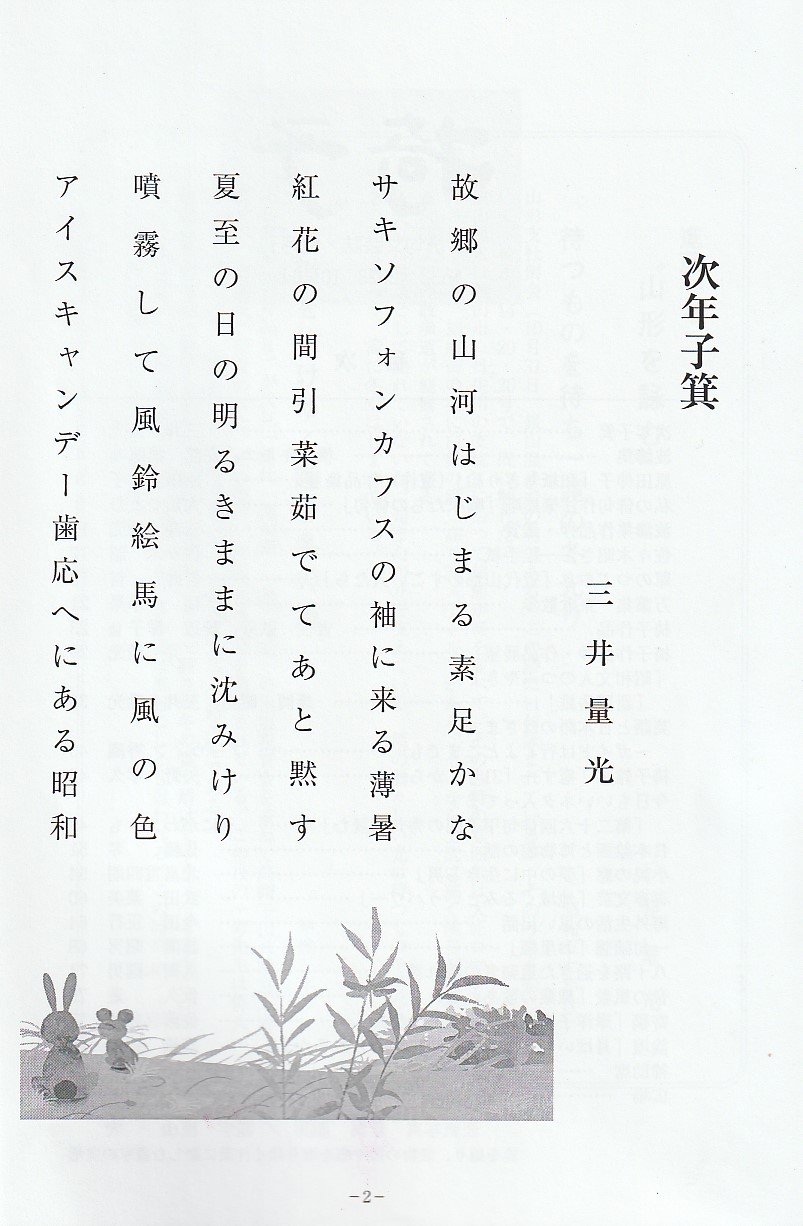 次年子箕
三井量光
故郷の山河はじまる素足かな
サキソフォンカフスの袖に来る薄暑
紅花の間引菜茹でてあと黙す
夏至の日の明るきままに沈みけり
噴霧して風鈴絵馬に風の色
アイスキャンデー歯応へにある昭和
-2-